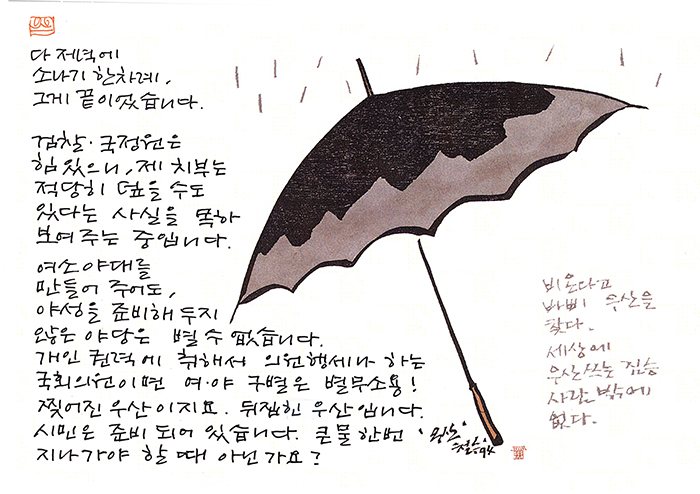 다 저녁에
소나기 한차례,
그게 끝이었습니다.
검찰·국정원은
힘있으니, 제 치부는
적당히 덮을 수도
있다는 사실을 똑하
보여주는 중입니다.
여소야대를
만들어 주어도,
야성을 준비해 두지
않은 야당은 별 수 없습니다.
개인 권력에 취해서 의원행세나 하는
국회의원이면 여·야 구별은 별무소용!
찢어진 우산이지요. 뒤집힌 우산입니다.
시민은 준비되어 있습니다. 큰물 한번
지나가야 할 때 아닌가요?
비온다고
바삐 우산을
찾다.
세상에
우산쓰는 짐승
사람밖에
없다.
'우산'
철수 94